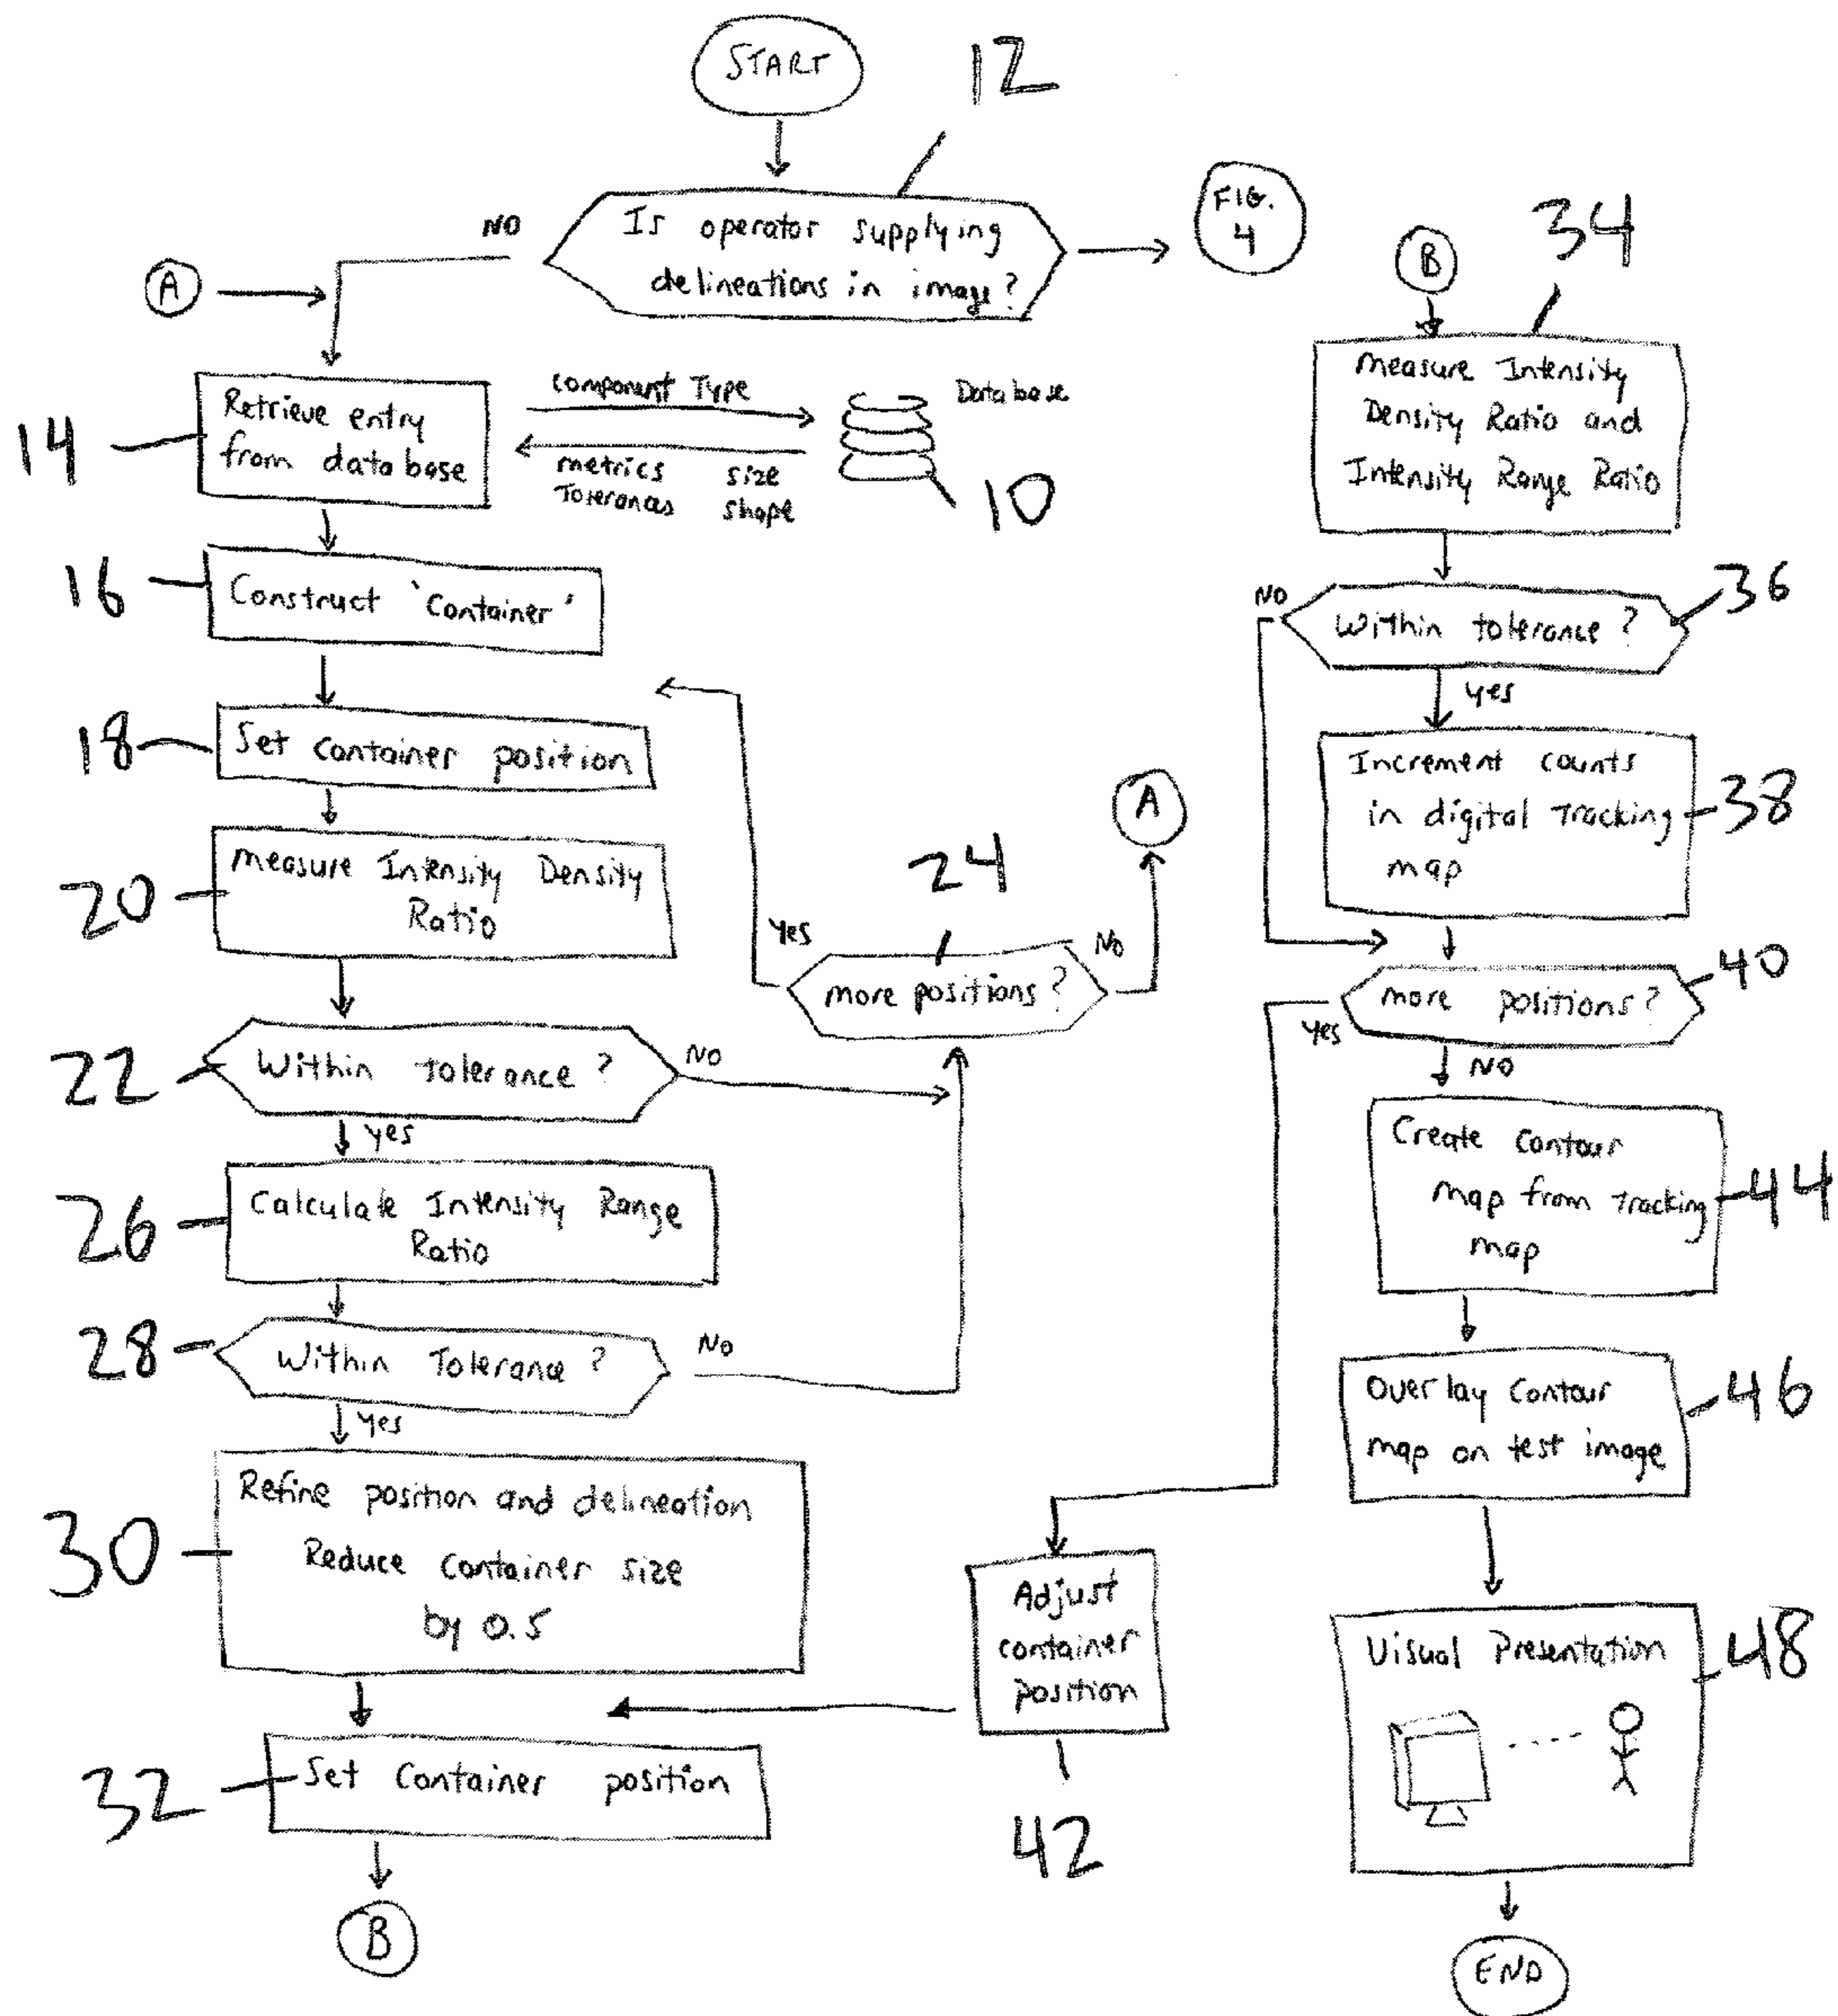 START
12
Is operator supplying
delineations in image?
NO
FIG.
4
A
14
Retrieve entry
from database
Component Type
metrics size
Tolerances shape
Database
10
16
Construct 'Container'
18
Set container position
20
Measure Intensity Density
Ratio
22
Within tolerance?
NO
yes
24
more positions?
yes
No
A
26
Calculate Intensity Range
Ratio
28
Within Tolerance?
No
yes
30
Refine position and delineation
Reduce container size
by 0.5
32
Set Container position
B
B
34
Measure Intensity
Density Ratio and
Intensity Range Ratio
36
Within tolerance?
NO
yes
38
Increment counts
in digital Tracking
map
40
more positions?
yes
NO
42
Adjust
container
position
44
Create Contour
map from Tracking
map
46
Overlay Contour
map on test image
48
Visual Presentation
END